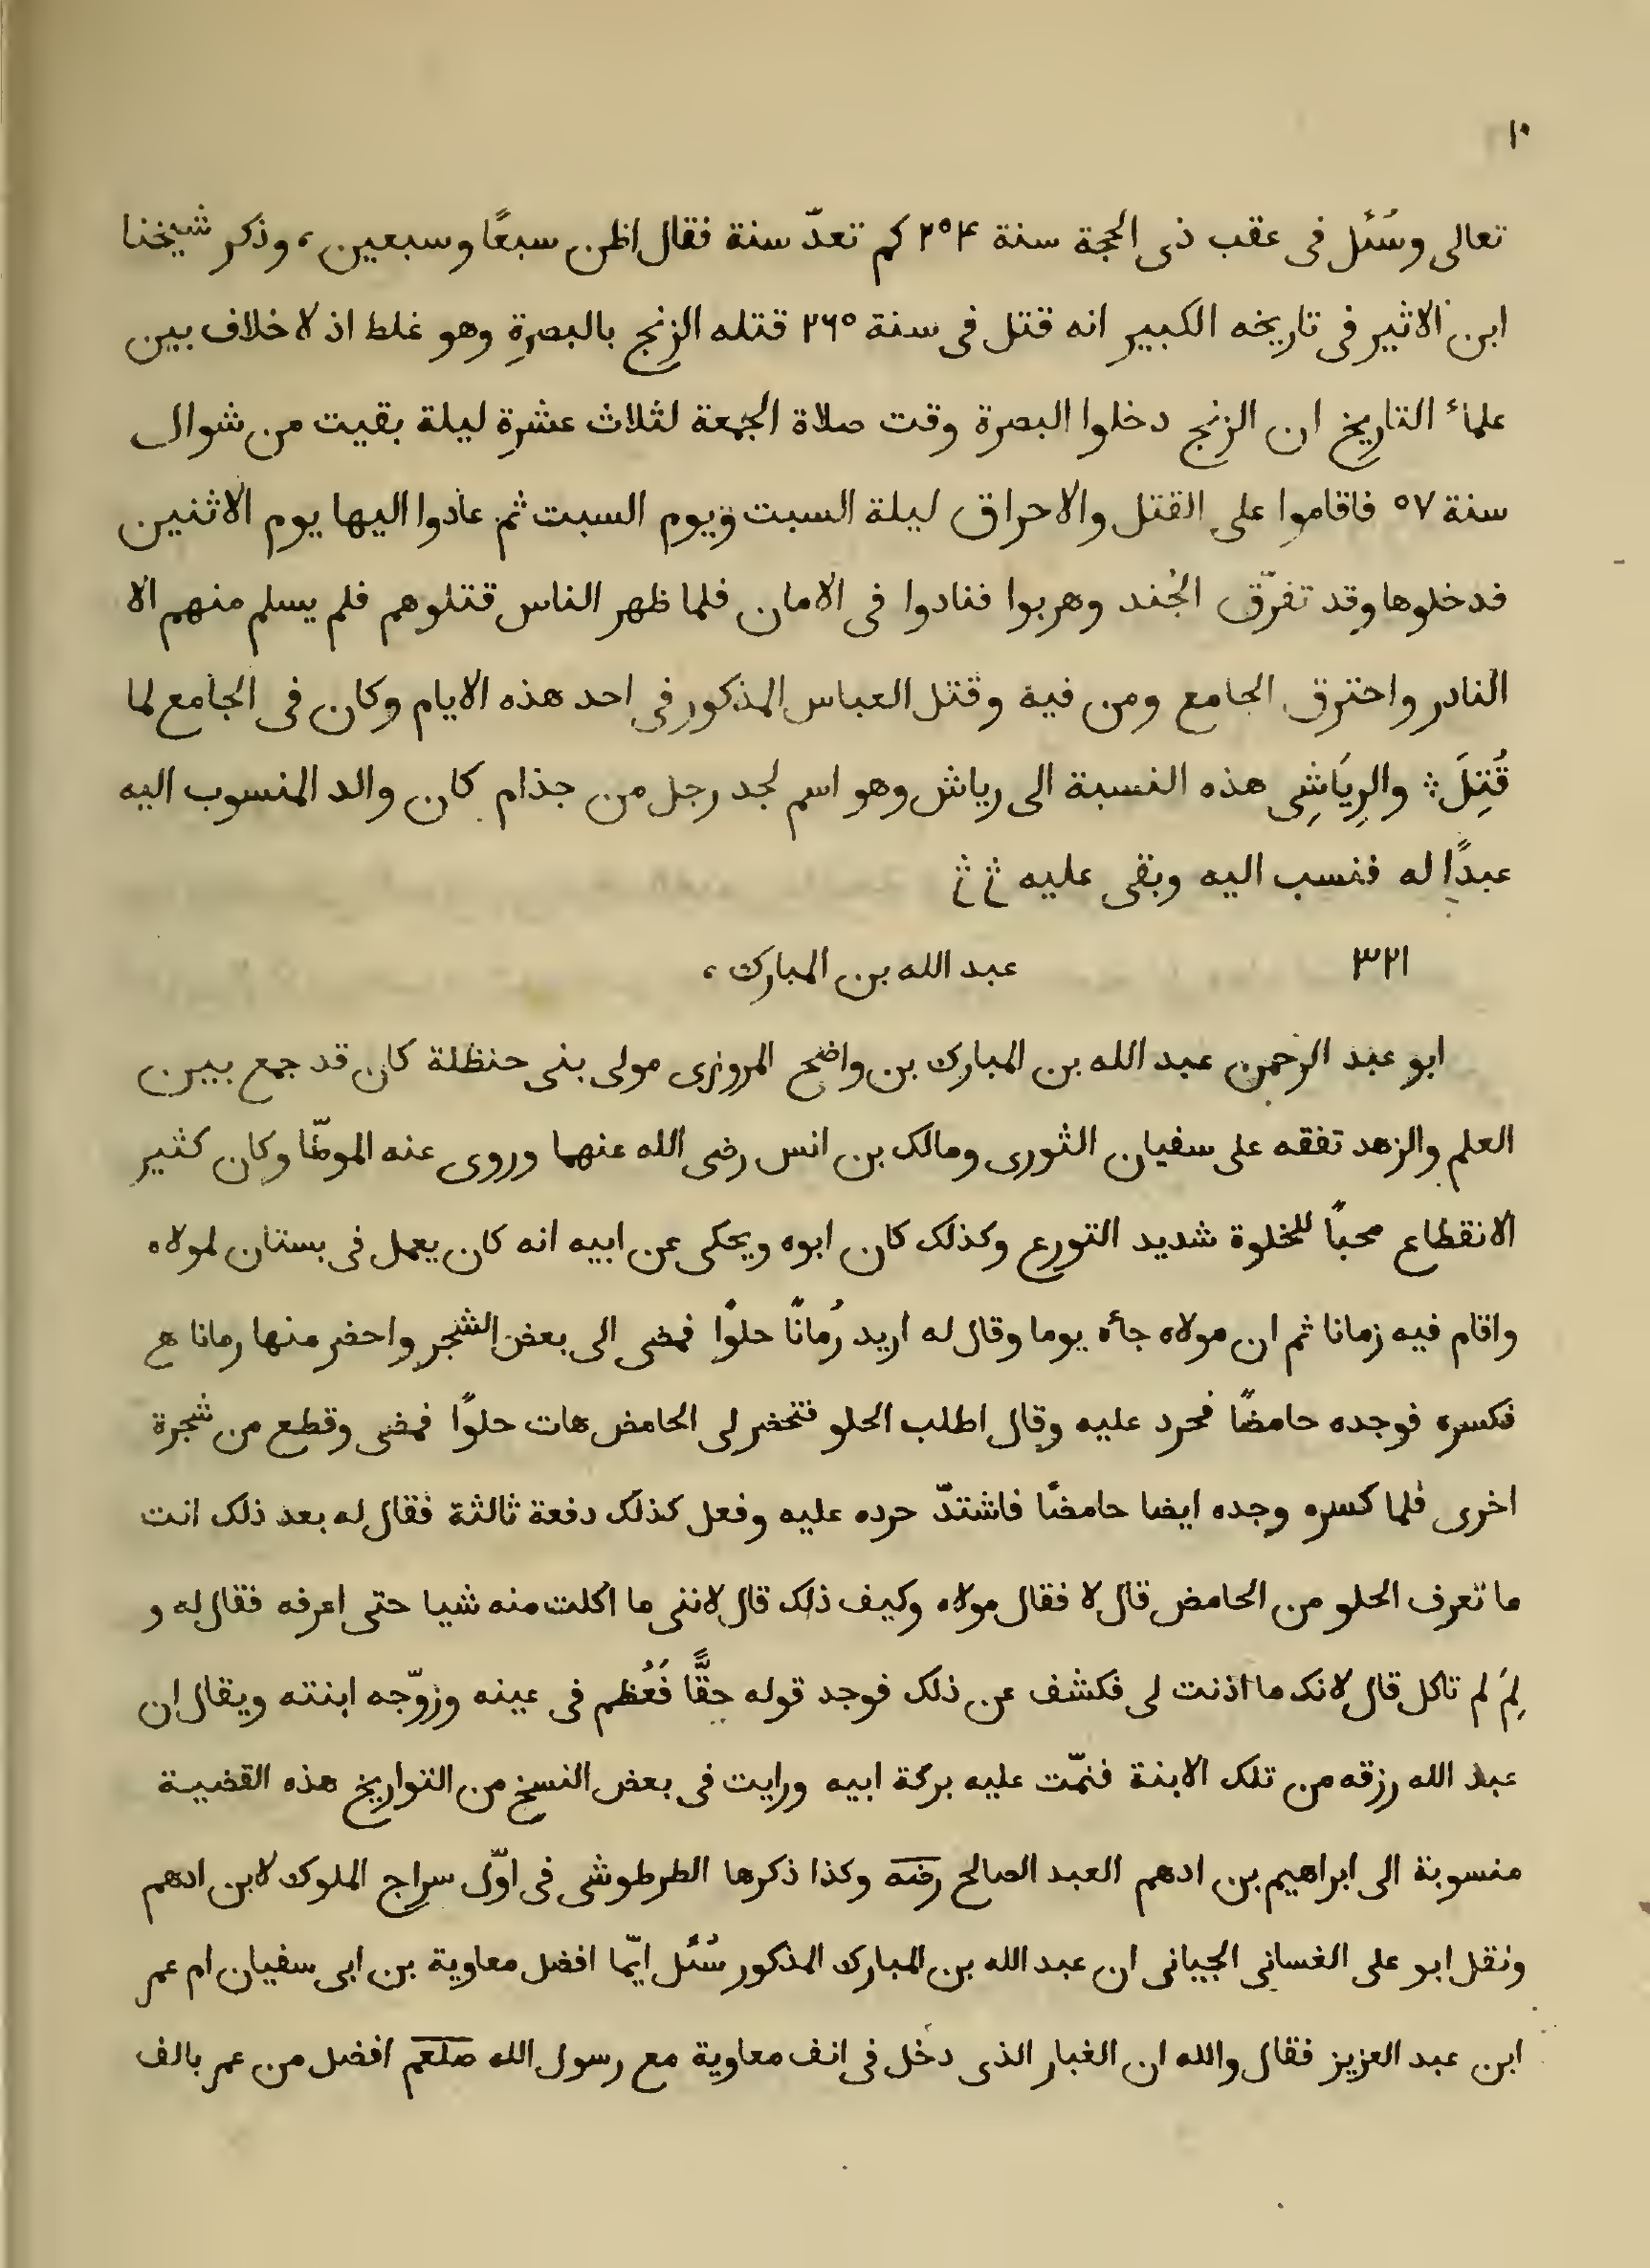 ١٠
تعالى وسُئل فى عقب ذى الحجة سنة ٢٥۴ كم تعدّ سنة فقال اظن سبعًا وسبعين، وذكر شيخنا
ابن الاثير فى تاريخه الكبير انه قتل فى سنة ٢٦٥ قتله الزنج بالبصرة وهو غلط اذ لا خلاف بين
علماء التاريخ ان الزنج دخلوا البصرة وقت صلاة الجمعة لثلاث عشرة ليلة بقيت من شوال
سنة ٥٧ فاقاموا على القتل والاحراق ليلة السبت ويوم السبت ثم عادوا اليها يوم الاثنين
فدخلوها وقد تفرّق الجُند وهربوا فنادوا فى الامان فلما ظهر الناس قتلوهم فلم يسلم منهم الا
النادر واحترق الجامع ومن فيه وقتل العباس المذكور فى احد هذه الايام وكان فى الجامع لما
قُتِلَ ؞ والرِيَاشِى هذه النسبة الى رياش وهو اسم لجد رجل من جذام كان والد المنسوب اليه
عبدًا له فنسب اليه وبقى عليه
٣٢١ عبد الله بن المبارك،
ابو عبد الرحمن عبد الله بن المبارك بن واضح المروزى مولى بنى حنظلة كان قد جمع بين
العلم والزهد تفقه على سفيان الثورى ومالك بن انس رضى الله عنهما وروى عنه الموطّا وكان كثير
الانقطاع محبًا للخلوة شديد التورع وكذلك كان ابوه ويحكى عن ابيه انه كان يعمل فى بستان لمولاه
واقام فيه زمانا ثم ان مولاه جاٴه يوما وقال له اريد رُمانًا حلوًا فمضى الى بعض الشجر واحضر منها رمانا
فكسره فوجده حامضًا فحرد عليه وقال اطلب الحلو فتحضر لى الحامض هات حلوًا فمضى وقطع من شجرة
اخرى فلما كسره وجده ايضا حامضًا فاشتدّ حرده عليه وفعل كذلك دفعة ثالثة فقال له بعد ذلك انت
ما تعرف الحلو من الحامض قال لا فقال مولاه وكيف ذلك قال لاننى ما اكلت منه شيا حتى اعرفه فقال له و
لِمَ لم تاكل قال لانك ما اذنت لى فكشف عن ذلك فوجد قوله حقًّا فَعُظم فى عينه وزوّجه ابنته ويقال ان
عبد الله رزقه من تلك الابنة فنمّت عليه بركة ابيه ورايت فى بعض النسخ من التواريخ هذه القضية
منسوبة الى ابراهيم بن ادهم العبد الصالح رضه وكذا ذكرها الطرطوشى فى اوّل سراج الملوك لابن ادهم
ونقل ابو على الغسانى الجيانى ان عبد الله بن المبارك المذكور سُئل ايّما افضل معاوية بن ابى سفيان ام عمر
ابن عبد العزيز فقال والله ان الغبار الذى دخل فى انف معاوية مع رسول الله صلعم افضل من عمر بالف